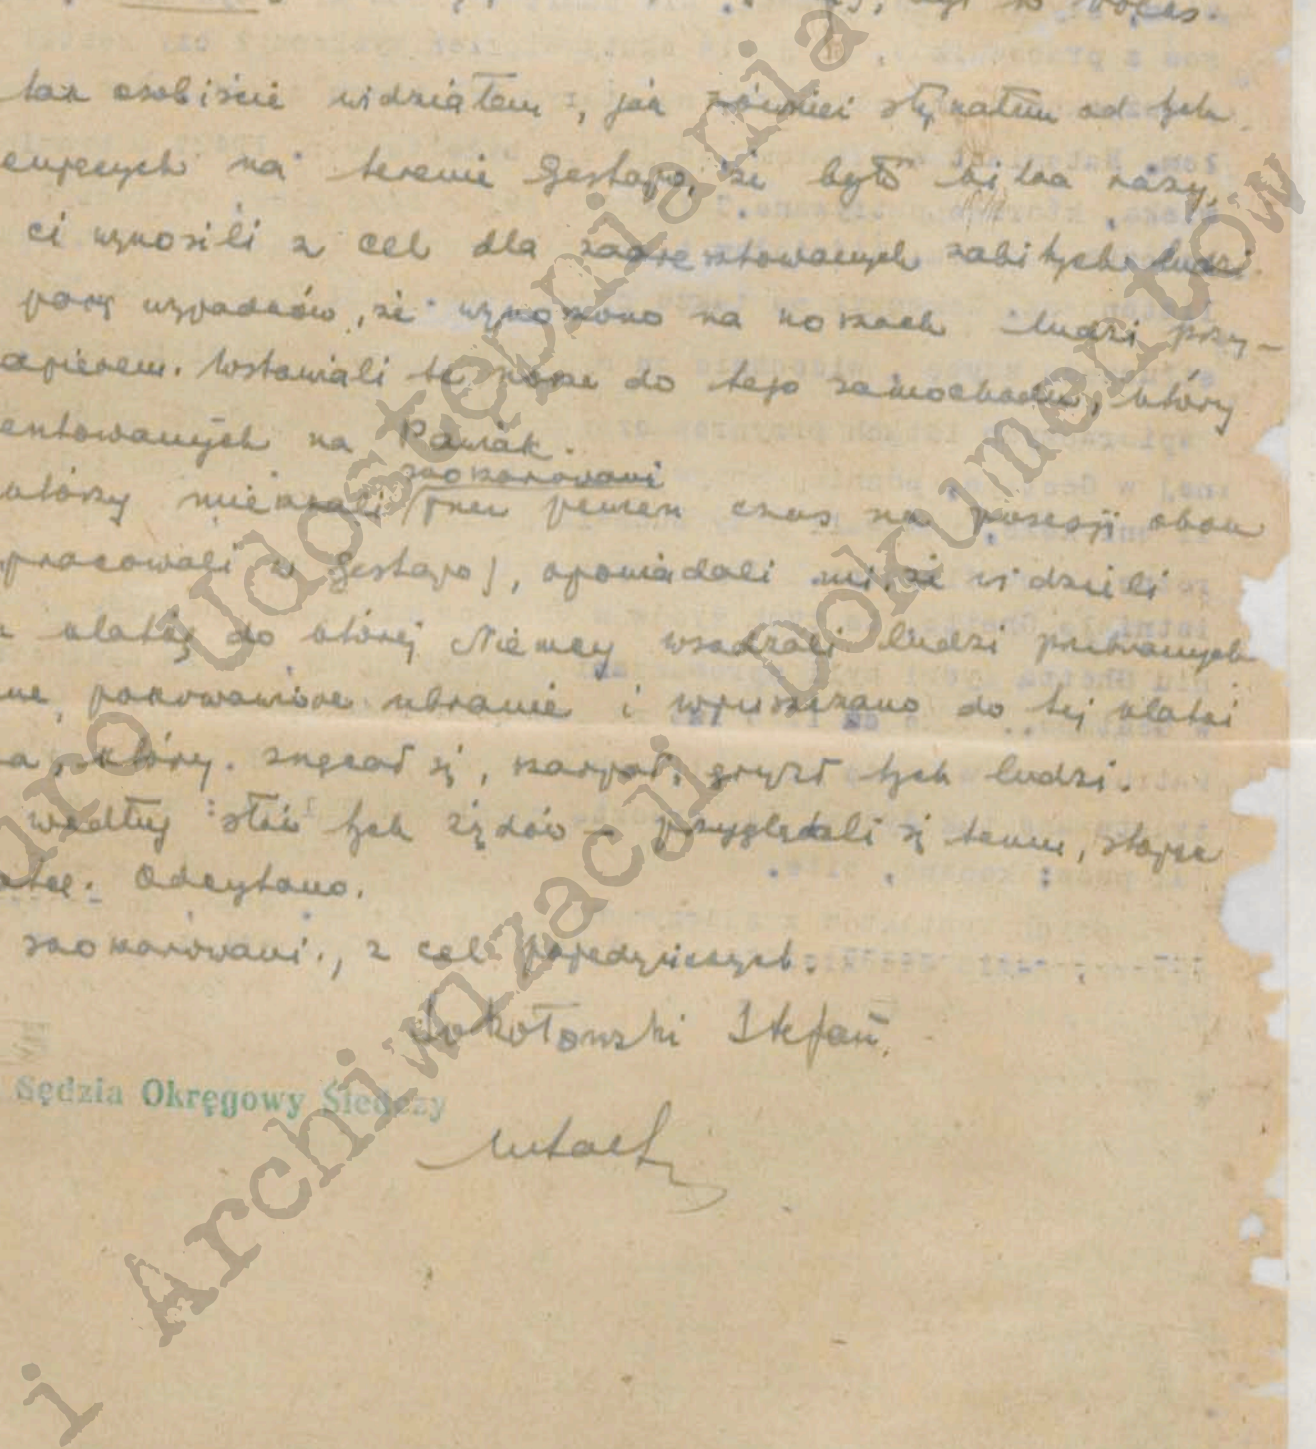 tak osobiście widziałem, jak również słyszałem od tych
na terenie Gestapo, że było kilka razy,
ci wynosili z cel dla zaaresztowanych zabitych ludzi.
parę wypadków, że wynoszono na noszach ludzi przy-
apierem. Wstawiali te nosze do tego samochodu, który
na Pawiak.
skoszarowani
którzy mieszkali przez pewien czas na posesji obok
pracowali w Gestapo), opowiadali mi, że widzieli
klatkę do której Niemcy wsadzali ludzi przebranych
ne, ubranie i wpuszczano do tej klatki
a, który znęcał się, szarpał, gryzł tych ludzi.
według słów tych Żydów – przyglądali się temu, stojąc
atce. Odczytano.
skoszarowani., z cel pojedyńczych.
Sokołowski Stefan.
Sędzia Okręgowy Śledczy
Biuro Udostępniania
i Archiwizacji Dokumentów